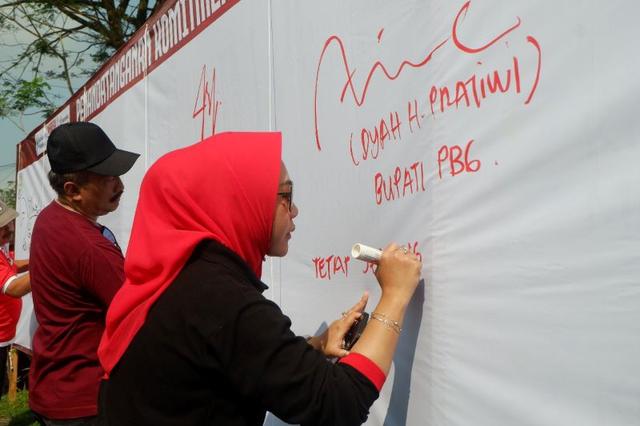 PENANDATANGANAN KOMITMEN
(DYAH H. PRATIWI)
BUPATI PBG.
TETAP